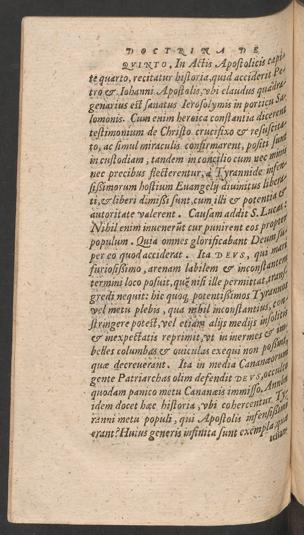 DOCTRINA DE
QVINTO, In Actis Apostolicis capi-
te quarto, recitatur historia, quid acciderit Pe-
tro & Iohanni Apostolis, vbi claudus quadra-
genarius est sanatus Ierosolymis in porticu Sa-
lomonis. Cum enim heroica constantia dicerent
testimonium de Christo crucifixo & resuscita-
to, ac simul miraculis confirmarent, positi sunt
in custodiam, tandem in concilio cum nec minis
nec precibus flecterentur, à Tyrannide infen-
sissimorum hostium Euangelij diuinitus libera-
ti, & liberi dimissi sunt, cum illi & potentia &
autoritate valerent. Causam addit S. Lucas:
Nihil enim inuenerũt cur punirent eos propter
populum. Quia omnes glorificabant Deum su-
per eo quod acciderat. Ita DEVS, qui mari
furiosissimo, arenam labilem & inconstantem
termini loco posuit, quẽ nisi ille permittat, trans-
gredi nequit: hic quoq; potentissimos Tyrannos
vel metu plebis, qua nihil inconstantius, con-
stringere potest, vel etiam alijs medijs insolitis
& inexpectatis reprimit, vt in inermes & im-
belles columbas & ouiculas exequi non possint,
quæ decreuerant. Ita in media Cananæorum
gente Patriarchas olim defendit DEVS, occulto
quodam panico metu Cananæis immisso. Annon
idem docet hæc historia, vbi cohercentur Ty-
ranni metu populi, qui Apostolis infensissimi
erant? Huius generis infinita sunt exempla, quæ